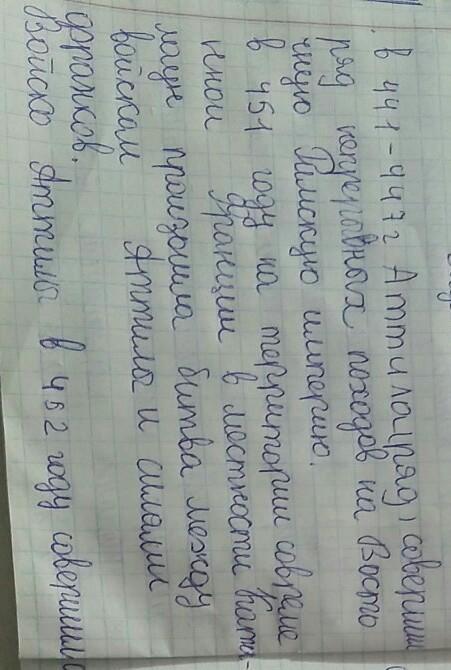 в 441-447г Аттила(ряд, совершил
ряд непрерывных походов на Восто
чную Римскую империю.
в 451 году на территории совреме
нной Франции в местности Ката-
лаун произошла битва между
войскам Аттилы и силами
франков.
Войско Аттилы в 452 году совершило